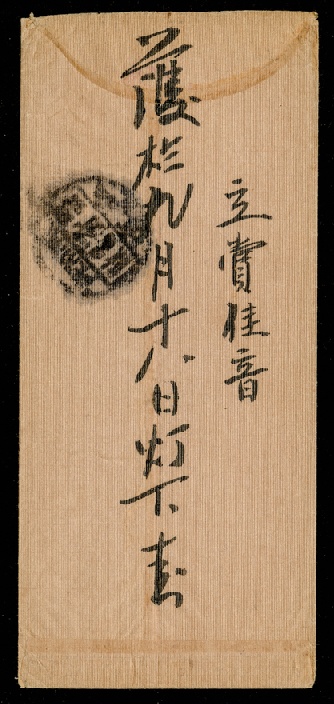 立賞佳音
護於九月十八日灯下書